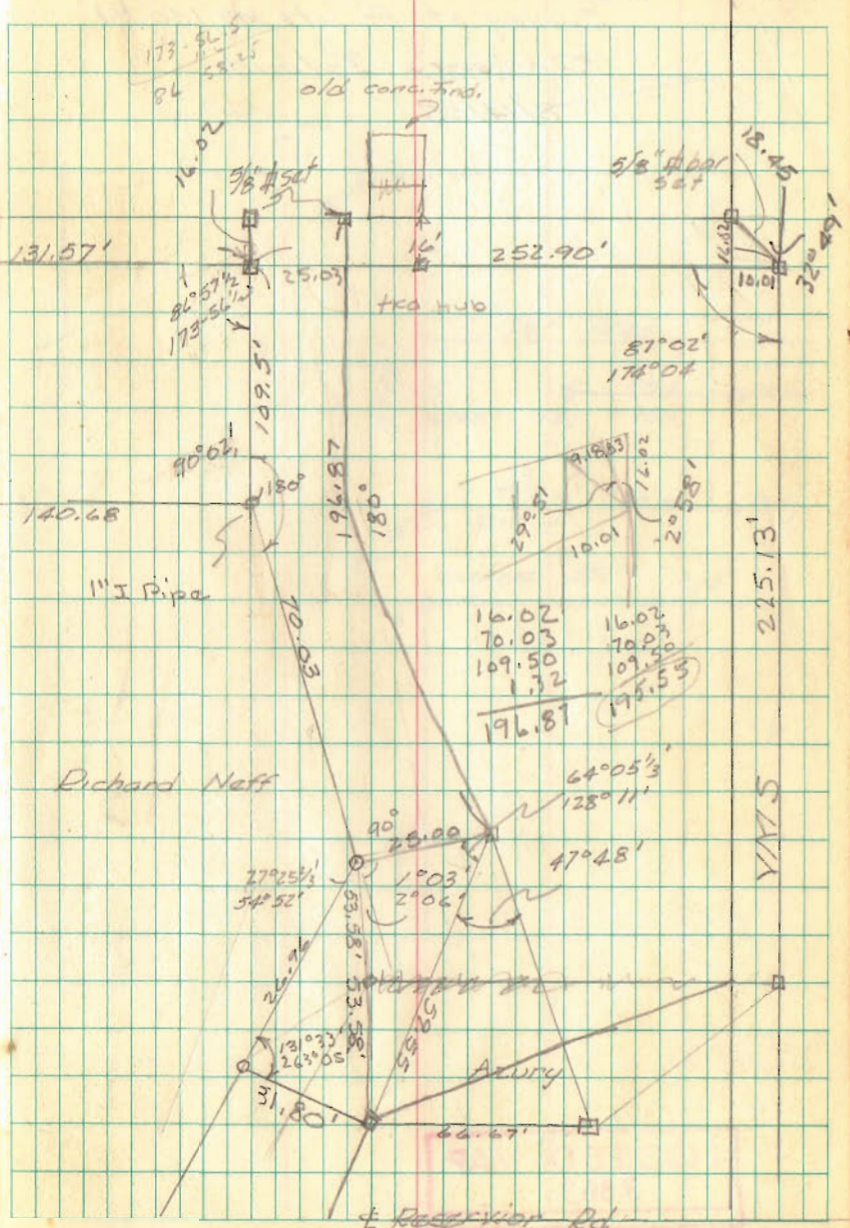 173-56.5
86 58.25
old conc. Fnd.
16.02
5/8" # set
5/8" # bar
set
18.45
131.57'
25.03
16'
252.90'
16.02
10.01
32°49'
86°57½
173-56½
tko hub
87°02'
174°04
109.5'
90°02'
180°
196.87
180°
9.18
16.02
29°51
2°58'
10.01
140.68
1" I Pipe
70.03
225.13'
16.02
70.03
109.50
1.32
196.87
16.02
70.03
109.50
195.55
Richard Neff
64°05⅓'
128°11'
90°
25.00
47°48'
27°25⅓'
54°52'
1°03'
2°06'
53.58'
53.58'
26.96
59.55
131°33'
263°05'
Azury
31.80'
66.67'
℄ Reservior Rd